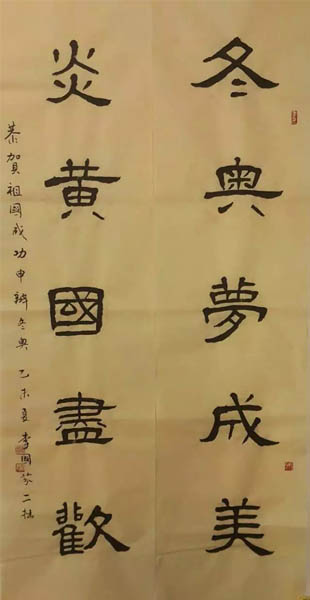 冬奥夢成美
炎黄國盡歡
恭賀祖國成功申辦冬奥 乙未夏李國